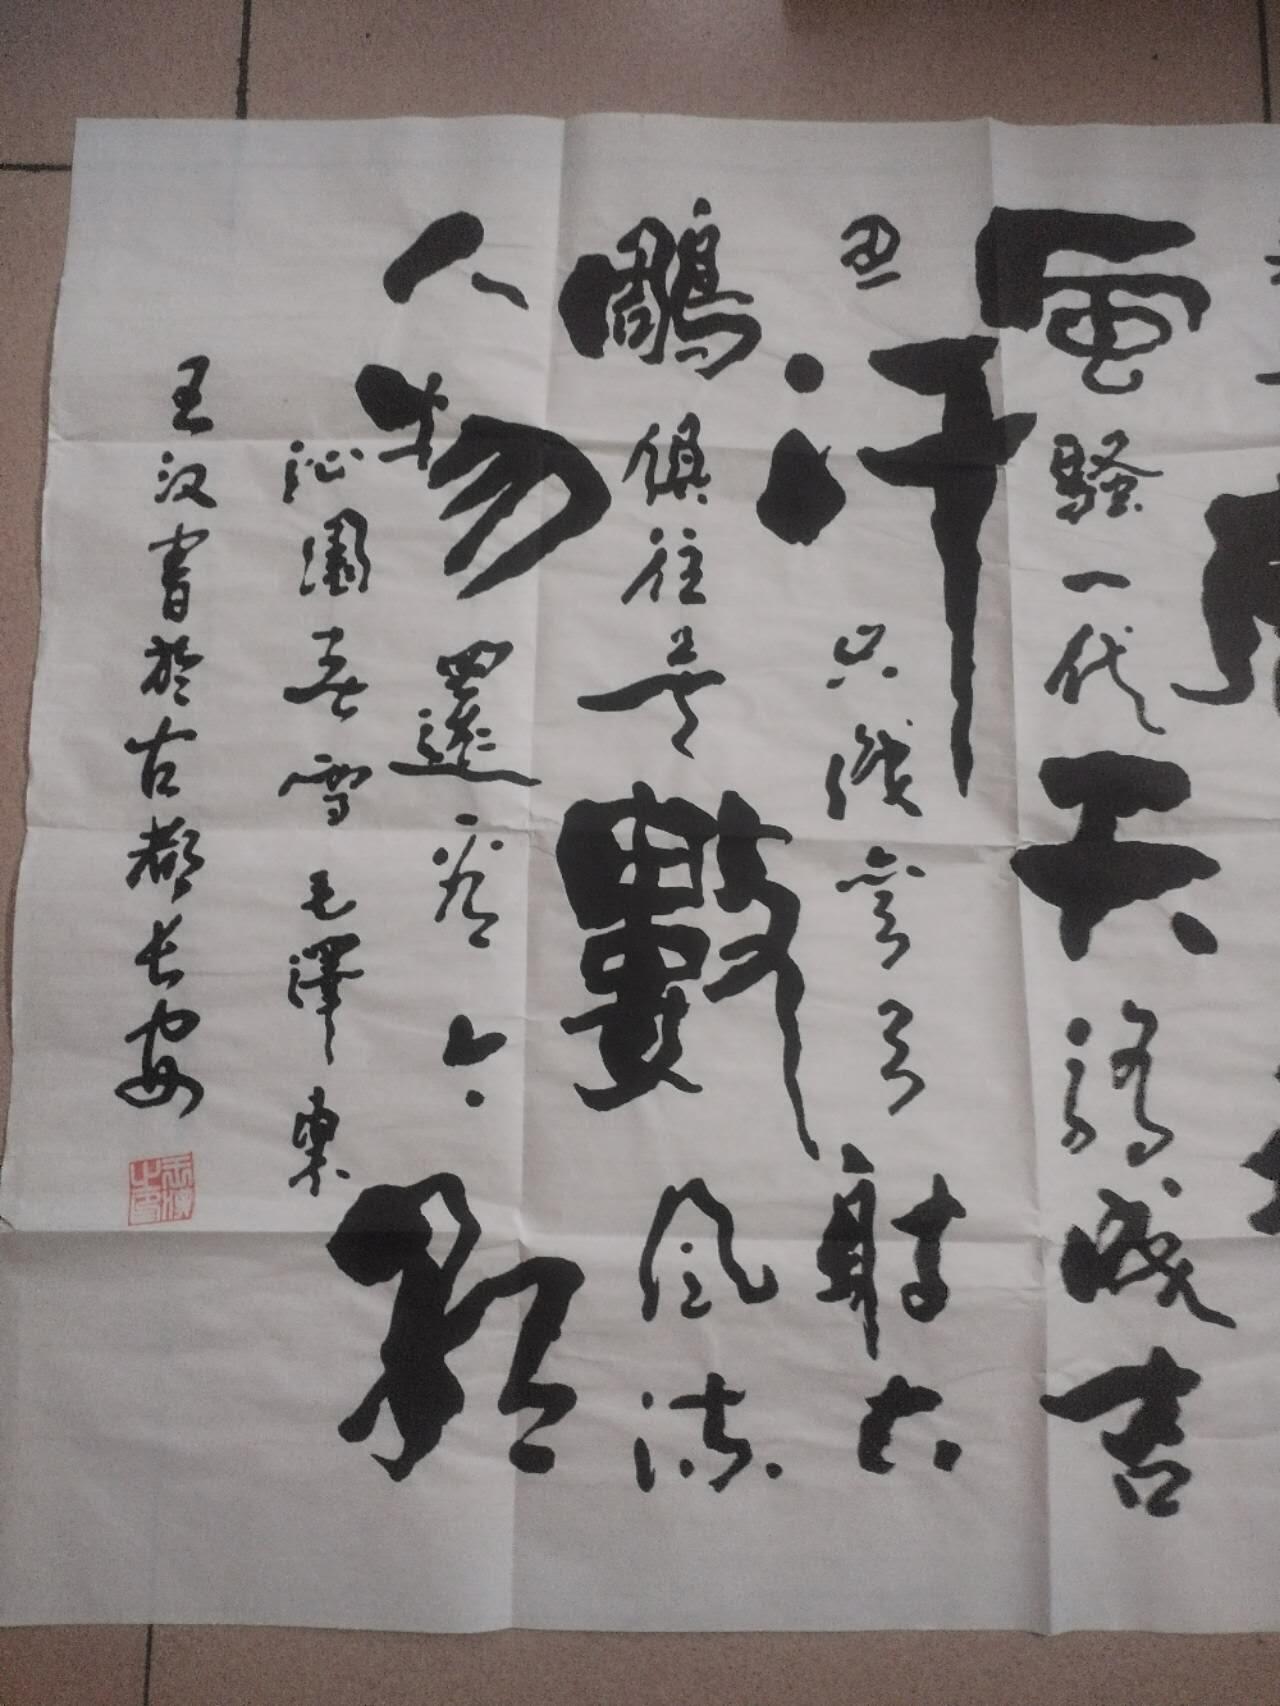 風騷一代天驕成吉
思汗只識彎弓射大
鵰俱往矣數風流
人物還看今朝
沁園春雪毛澤東
王汉書於古都长安